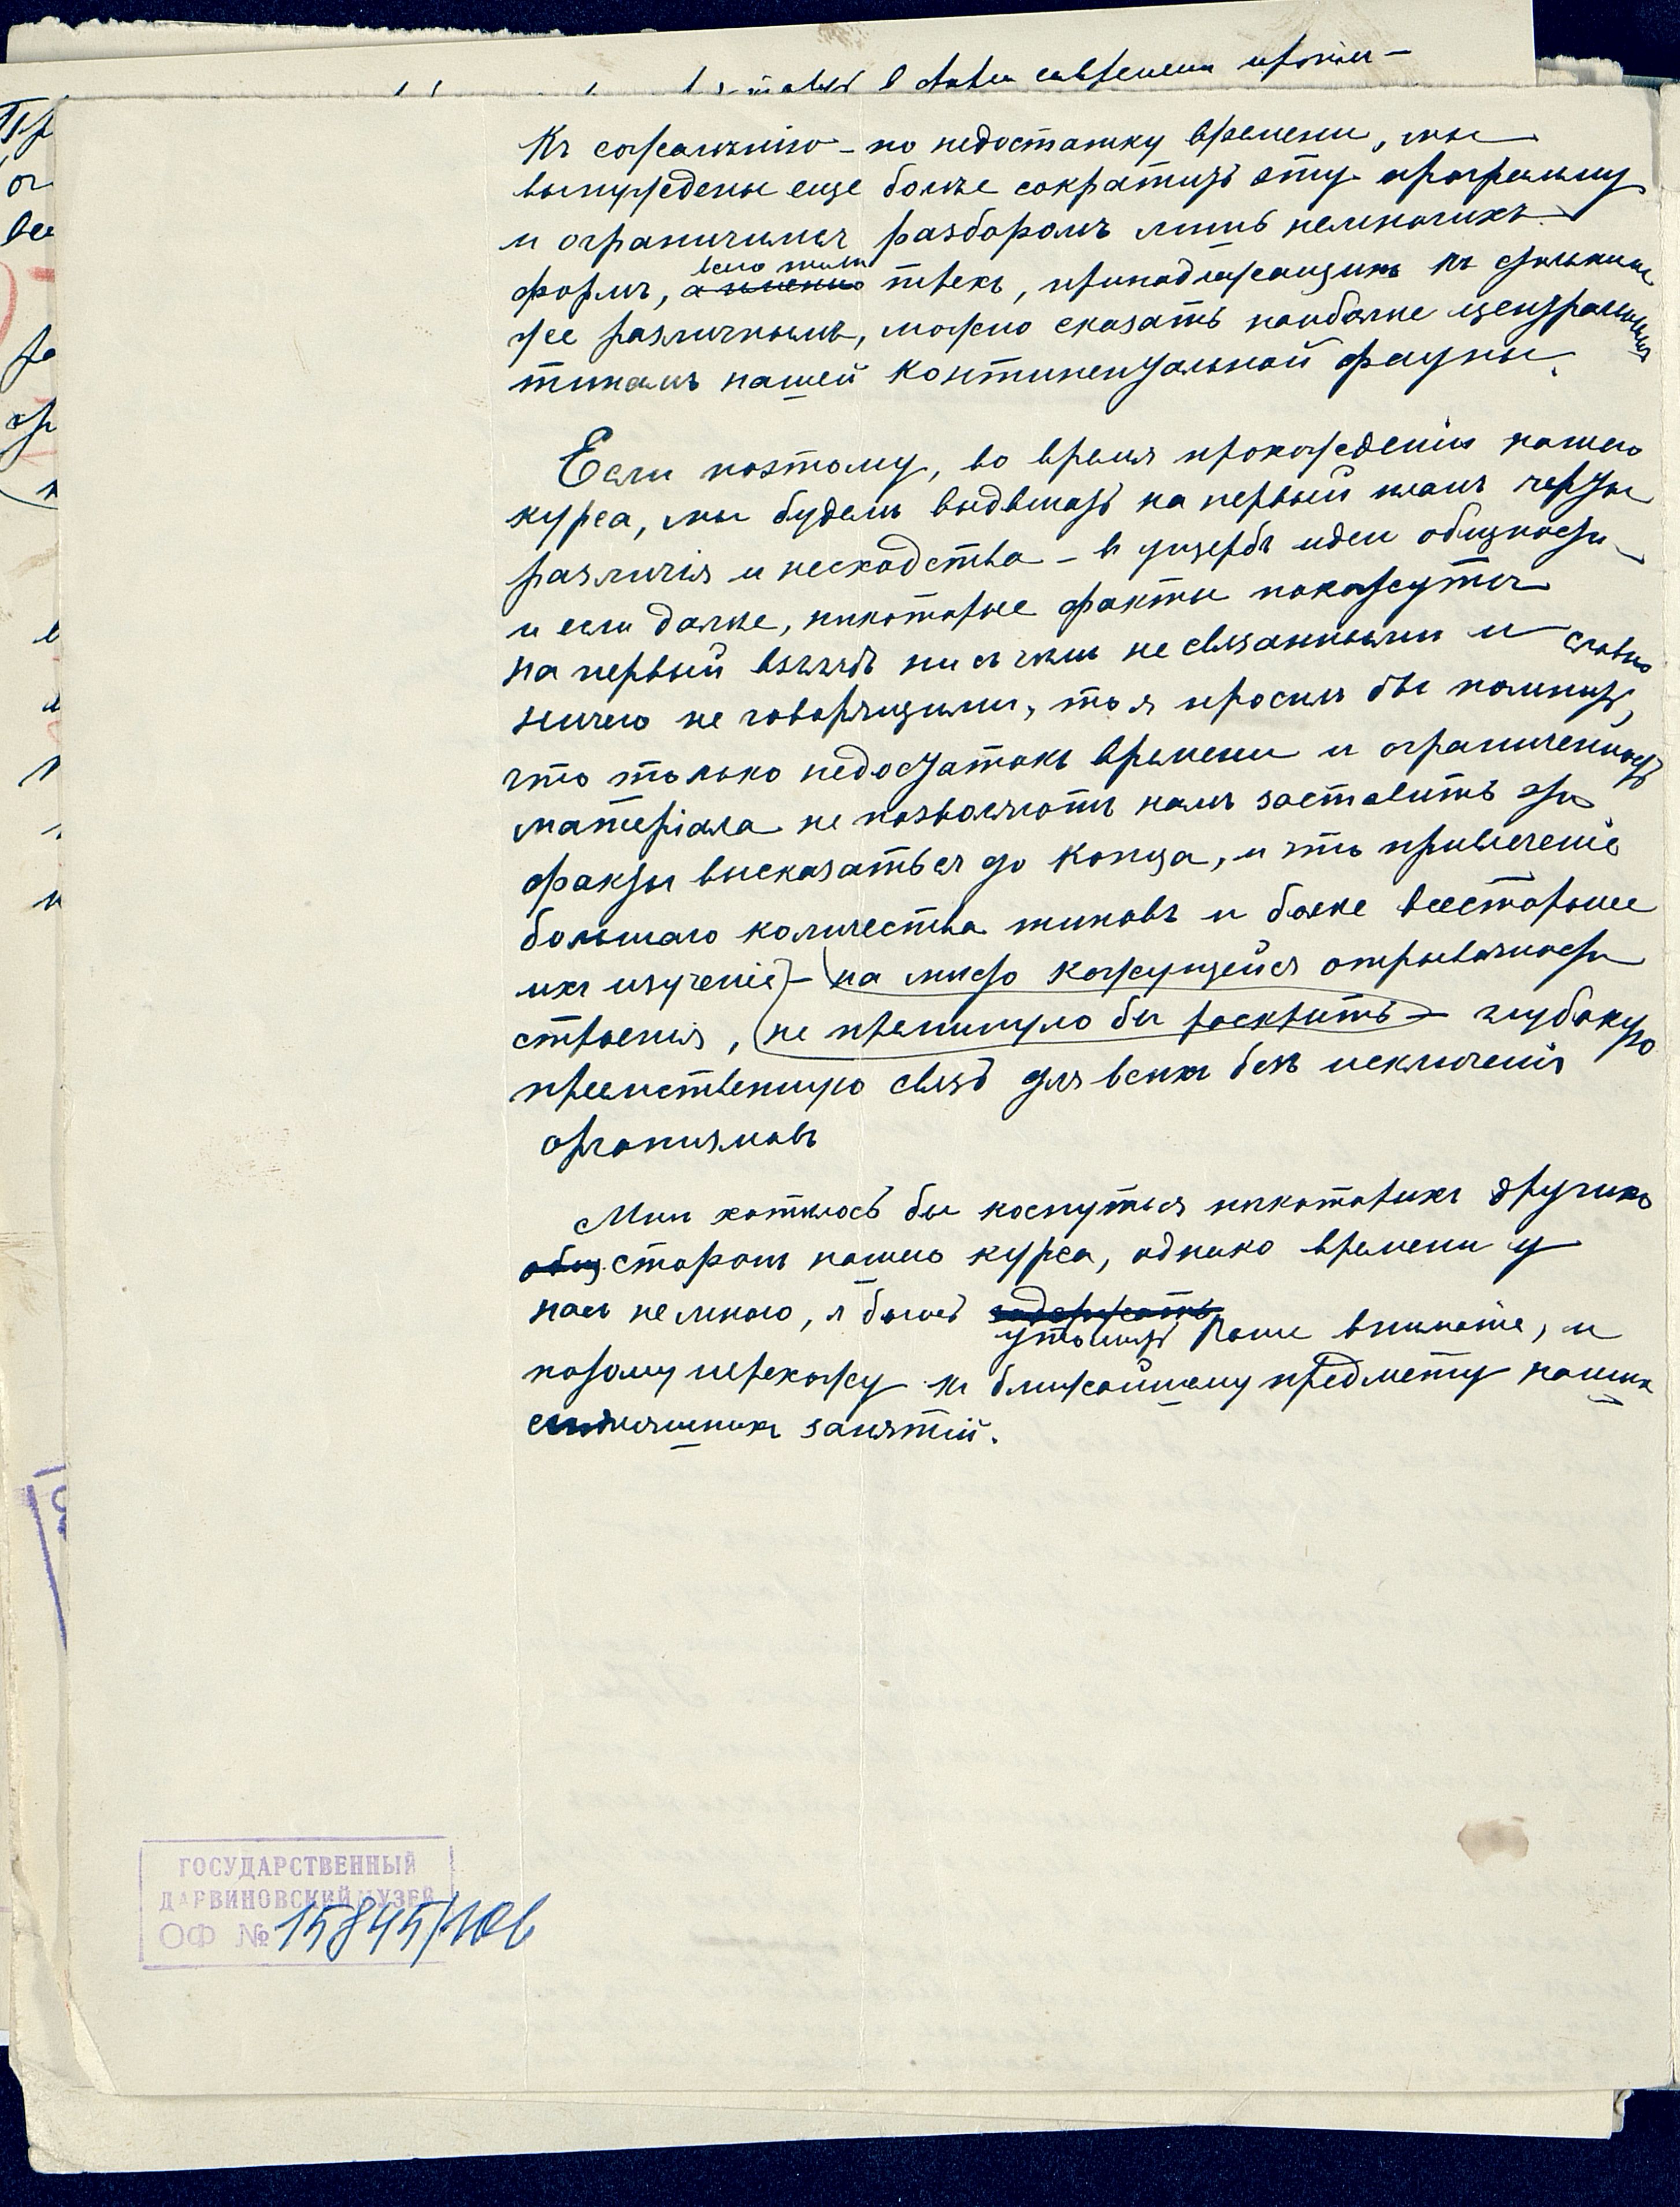 Къ сожалѣнію – по недостатку времени, мы
вынуждены еще болѣе сократить эту программу
и ограничимся разборомъ лишь немногихъ
всего лишь
формъ, а именно трехъ, принадлежащихъ къ столькимъ
же различнымъ, можно сказать наиболѣе центральнымъ
типамъ нашей континентальной фауны.
Если поэтому, во время прохожденія нашего
курса, мы будемъ выдвигать на первый планъ черты
различія и несходства – в ущербъ идеи общности –
и если далѣе, нѣкоторые факты покажутся
на первый взглядъ ни съ чѣмъ не связанными и словно
ничего не говорящими, то я просилъ бы помнить,
что только недостатокъ времени и ограниченность
матеріала не позволяютъ намъ заставить эти
факты высказаться до конца, и что привлеченіе
большаго количества типовъ и болѣе всестороннее
ихъ изученіе – на мѣсто кажущейся отрывочности
строенія, не преминуло бы раскрыть – глубокую
преемственную связь для всѣхъ безъ исключенія
организмовъ
Мнѣ хотѣлось бы коснуться нѣкоторыхъ другихъ
общ. сторонъ нашего курса, однако времени у
насъ немного, я боюсь задержать
утомить Ваше вниманіе, и
потому перехожу къ ближайшему предмету нашихъ
сегодняшнихъ занятій.
ГОСУДАРСТВЕННЫЙ
ДАРВИНОВСКИЙ МУЗЕЙ
ОФ № 15845/10в